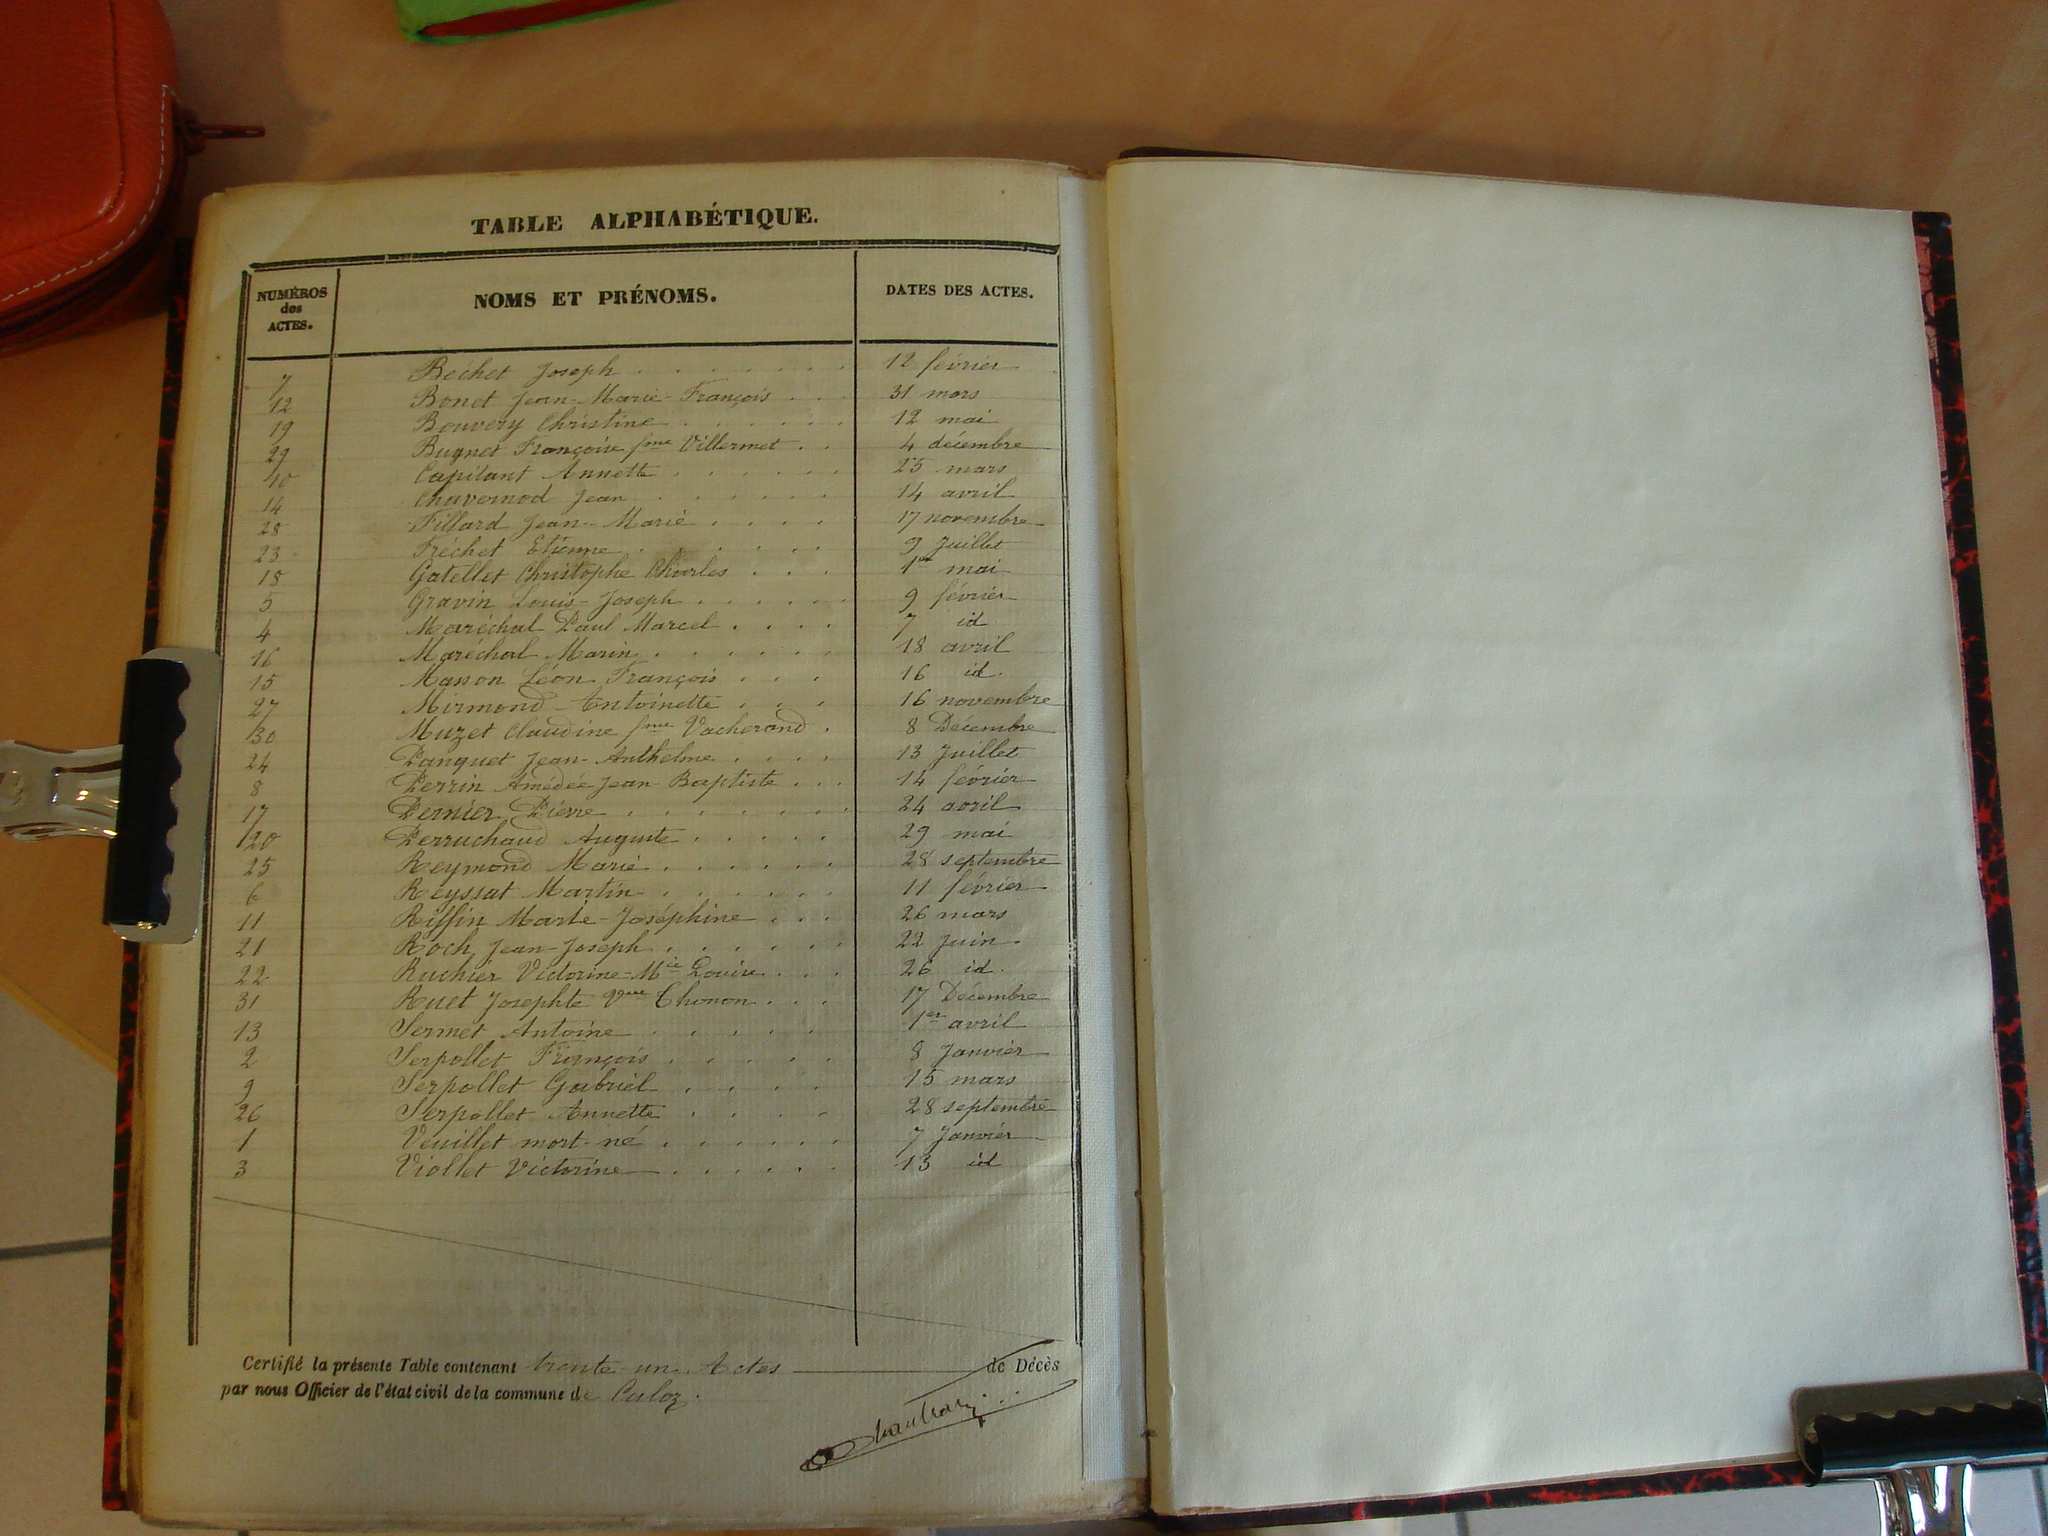 TABLE ALPHABÉTIQUE.
NUMÉROS des ACTES. NOMS ET PRÉNOMS. DATES DES ACTES.
7 Béchet Joseph 12 février
12 Bonet Jean-Marie-François 31 mars
19 Bouvery Christine 12 mai
29 Bugnet Françoise fme Villermet 4 décembre
10 Capitant Annette 25 mars
14 Chavernod Jean 14 avril
28 Fillard Jean-Marie 17 novembre
23 Fréchet Etienne 9 Juillet
18 Gatellet Christophe Charles 1er mai
5 Gravin Louis-Joseph 9 février
4 Maréchal Paul Marcel 7 id
16 Maréchal Marin 18 avril
15 Masson Léon François 16 id.
27 Mirmond Antoinette 16 novembre
30 Muzet Claudine fme Vacherand 8 Décembre
24 Panquet Jean-Anthelme 13 Juillet
8 Perrin Amédée Jean Baptiste 14 février
17 Pernier Pierre 24 avril
20 Perruchaud Auguste 29 mai
25 Reymond Marie 28 septembre
6 Reyssat Martin 11 février
11 Riffin Marie-Joséphine 26 mars
21 Roch Jean-Joseph 22 Juin.
22 Ruchier Victorine-Mie Louise 26 id.
31 Ruet Josephte Vve Thonon 17 Décembre
13 Sermet Antoine 1er avril
2 Serpollet François 8 Janvier
9 Serpollet Gabriel 15 mars
26 Serpollet Annette 28 septembre
1 Veuillet mort-né 7 Janvier
3 Viollet Victorine 13 id
Certifié la présente Table contenant trente-un Actes de Décès
par nous Officier de l'état civil de la commune de Culoz.